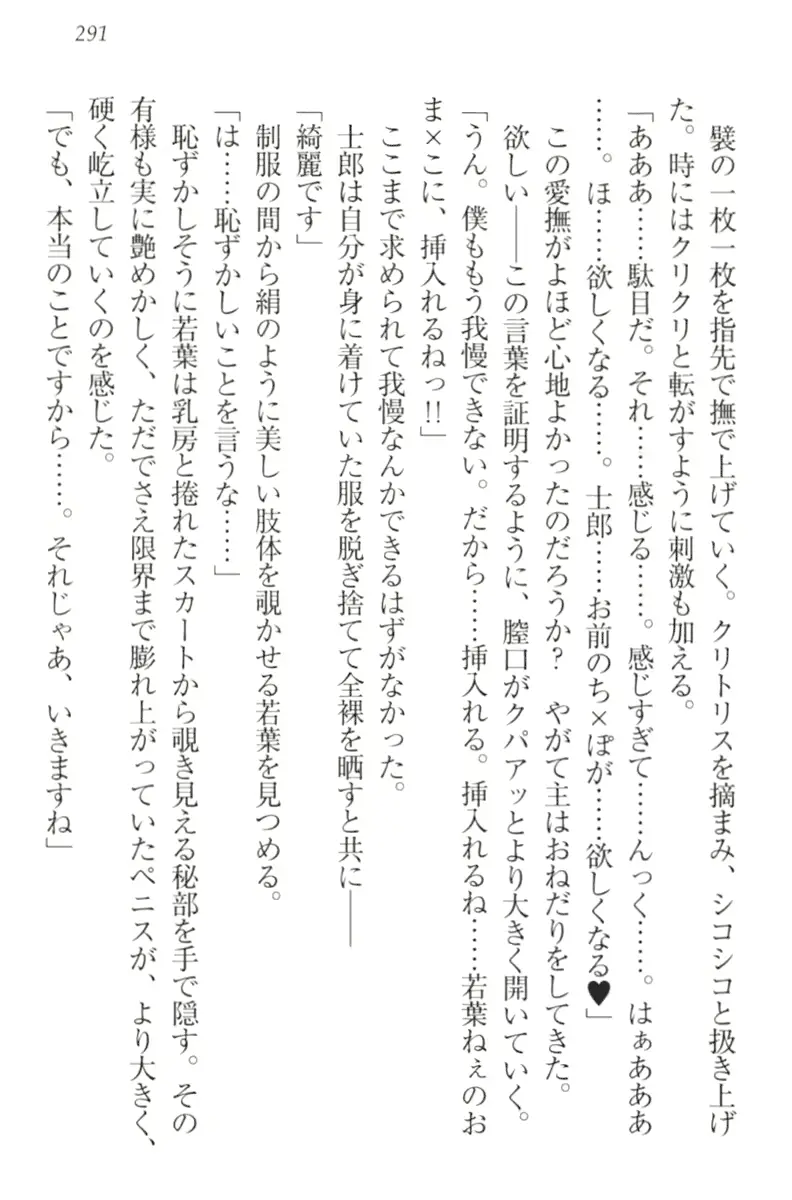 291
襞の一枚一枚を指先で撫で上げていく。クリトリスを摘まみ、シコシコと扱き上げ
た。時にはクリクリと転がすように刺激も加える。
「あああ……駄目だ。それ……感じる……。感じすぎて……んっく……。はぁあああ
……。ほ……欲しくなる……。士郎……お前のち×ぽが……欲しくなる♥」
この愛撫がよほど心地よかったのだろうか？　やがて主はおねだりをしてきた。
欲しい――この言葉を証明するように、膣口がクパアッとより大きく開いていく。
「うん。僕ももう我慢できない。だから……挿入れる。挿入れるね……若葉ねぇのお
ま×こに、挿入れるねっ!!」
ここまで求められて我慢なんかできるはずがなかった。
士郎は自分が身に着けていた服を脱ぎ捨てて全裸を晒すと共に――
「綺麗です」
制服の間から絹のように美しい肢体を覗かせる若葉を見つめる。
「は……恥ずかしいことを言うな……」
恥ずかしそうに若葉は乳房と捲れたスカートから覗き見える秘部を手で隠す。その
有様も実に艶めかしく、ただでさえ限界まで膨れ上がっていたペニスが、より大きく、
硬く屹立していくのを感じた。
「でも、本当のことですから……。それじゃあ、いきますね」